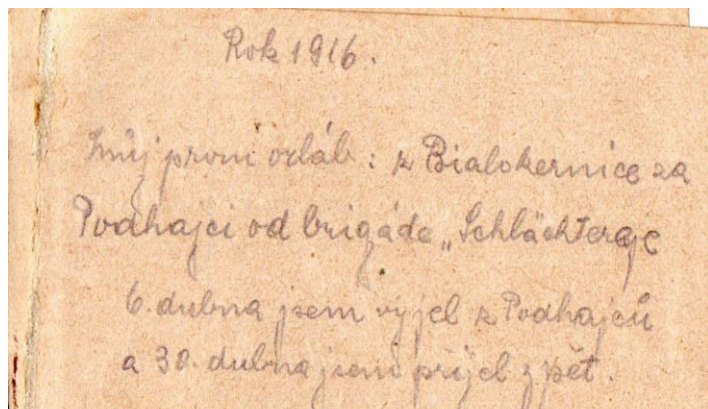 Rok 1916.
Můj první orláb: z Bialokernice za
Podhajci od brigáde „Schlächterge
6. dubna jsem vyjel z Podhajců
a 30. dubna jsem přijel zpět.